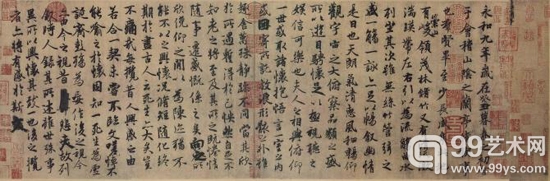 永和九年歲在癸丑暮春之初會
于會稽山陰之蘭亭脩禊事
也群賢畢至少長咸集此地
有崇山峻領茂林脩竹又有清流激
湍暎帶左右引以為流觴曲水
列坐其次雖無絲竹管弦之
盛一觴一詠亦足以暢敘幽情
是日也天朗氣清惠風和暢仰
觀宇宙之大俯察品類之盛
所以遊目騁懷足以極視聽之
娛信可樂也夫人之相與俯仰
一世或取諸懷抱悟言一室之內
或因寄所託放浪形骸之外雖
趣舍萬殊靜躁不同當其欣
於所遇暫得於己快然自足不
知老之將至及其所之既惓情
隨事遷感慨係之矣向之所
欣俛仰之閒以為陳迹猶不
能不以之興懷況脩短隨化終
期於盡古人云死生亦大矣豈
不痛哉每攬昔人興感之由
若合一契未嘗不臨文嗟悼不
能喻之於懷固知一死生為虛
誕齊彭殤為妄作後之視今
亦由今之視昔悲夫故列
敘時人錄其所述雖世殊事
異所以興懷其致一也後之攬
者亦將有感於斯文
99艺术网
www.99ys.com